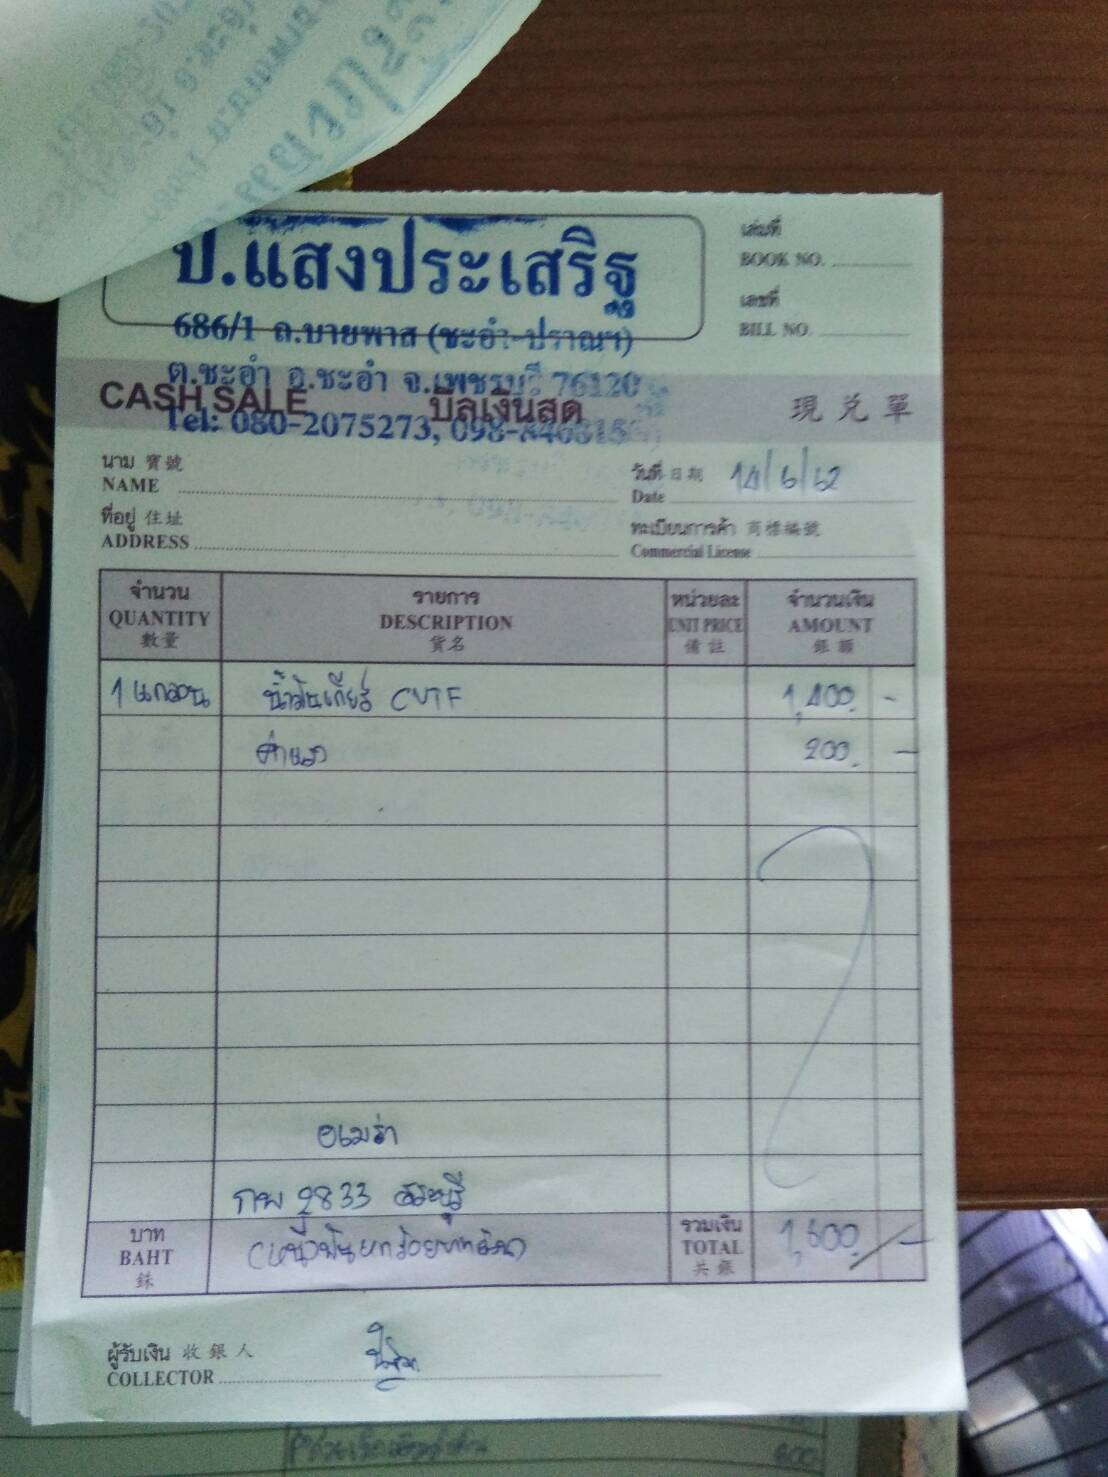 ป.แสงประเสริฐ
686/1 ถ.บายพาส (ชะอำ-ปราณฯ)
ต.ชะอำ อ.ชะอำ จ.เพชรบุรี 76120
Tel: 080-2075273,
เล่มที่
BOOK NO.
เลขที่
BILL NO.
CASH SALE บิลเงินสด 現兌單
นาม 寶號
NAME
วันที่ 日期 14/6/62
Date
ที่อยู่ 住址
ADDRESS
ทะเบียนการค้า 商標編號
Commercial License
จำนวน รายการ หน่วยละ จำนวนเงิน
QUANTITY DESCRIPTION UNIT PRICE AMOUNT
數量 貨名 備註 銀額
1 แกลอน น้ำมันเกียร์ CVTF 1,400. -
ค่าแรง 200. -
อเมร่า
กพ 2833 สระบุรี
บาท (หนึ่งพันหกร้อยบาทถ้วน) รวมเงิน 1,600. -
BAHT TOTAL
銖 共銀
ผู้รับเงิน 收銀人
COLLECTOR